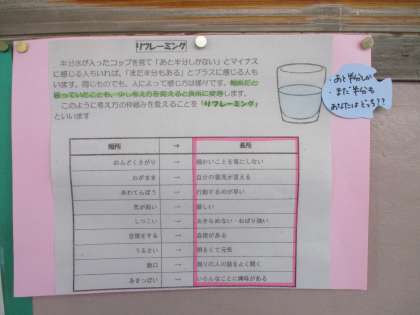 リフレーミング
半分水が入ったコップを見て「あと半分しかない」とマイナス
に感じる人もいれば、「まだ半分もある」とプラスに感じる人も
います。同じものでも、人によって感じ方は様々です。短所だと
思っていたことも、少し考え方を変えると長所に変身します。
このように考え方の枠組みを変えることを「リフレーミング」
といいます
・あと半分しか
・まだ半分も
あなたはどっち??
短所 → 長所
めんどくさがり → 細かいことを気にしない
わがまま → 自分の意見が言える
あわてんぼう → 行動するのが早い
気が弱い → 優しい
しつこい → あきらめない・ねばり強い
→ 自信がある
うるさい → 明るくて元気
無口 → 周りの人の話をよく聞く
あきっぽい → いろんなことに興味がある